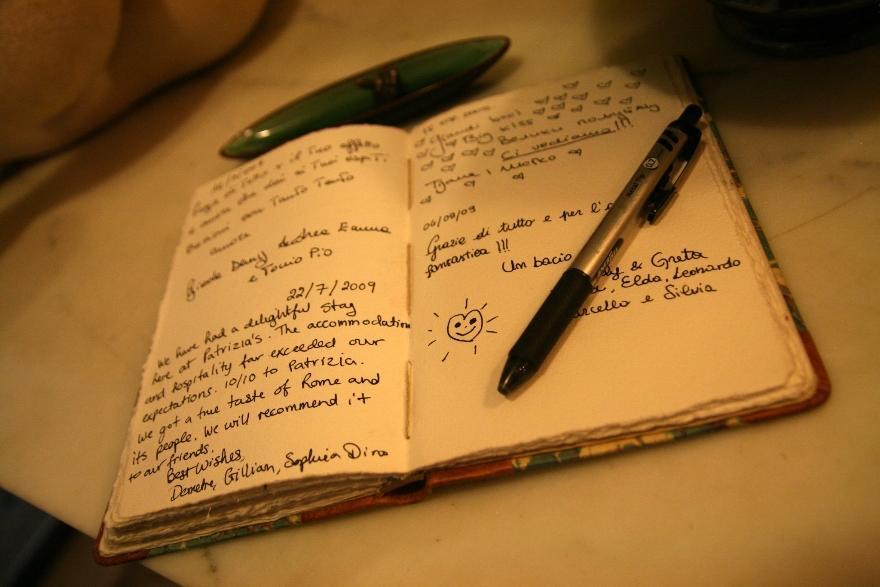 e il Tuo affitto
ai Tuoi ospiti
Tanto Tanto
Andrea Emma
e Tonio Pio
22/7/2009
We have had a delightful stay
here at Patrizia's. The accommodation
and hospitality far exceeded our
expectations. 10/10 to Patrizia.
We got a true taste of Rome and
its people. We will recommend it
to our friends.
Best Wishes,
Demetre, Gillian, Sophia Dino
Grandi baci
Big Kiss Велики пољубац
Ci vediamo!!!
Тјана и Марко
06/09/09
Grazie di tutto e per l'
fantastica !!!
Un bacio
& Greta
Elda, Leonardo
arcello e Silvia